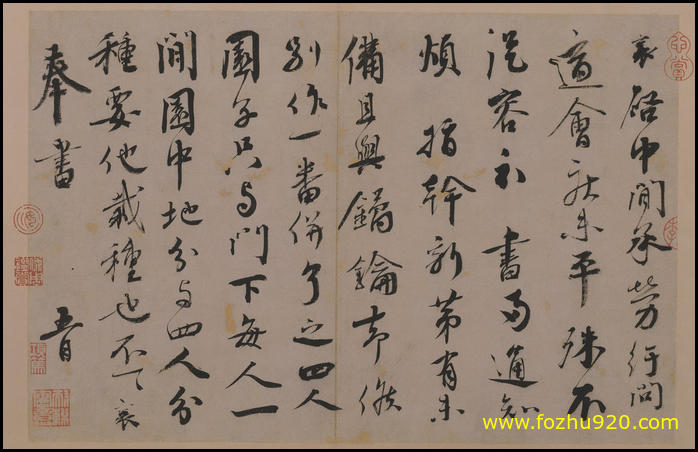 襄啓中間承勞行問
適會 未平殊不
從容 書 通知
煩 指幹新第有未
備且與鐍鑰却候
別作一番併了之四人
園子只与門下每人一
間園中地分与四人分
種要他栽種也不一一襄
奉書
www.fozhu920.com